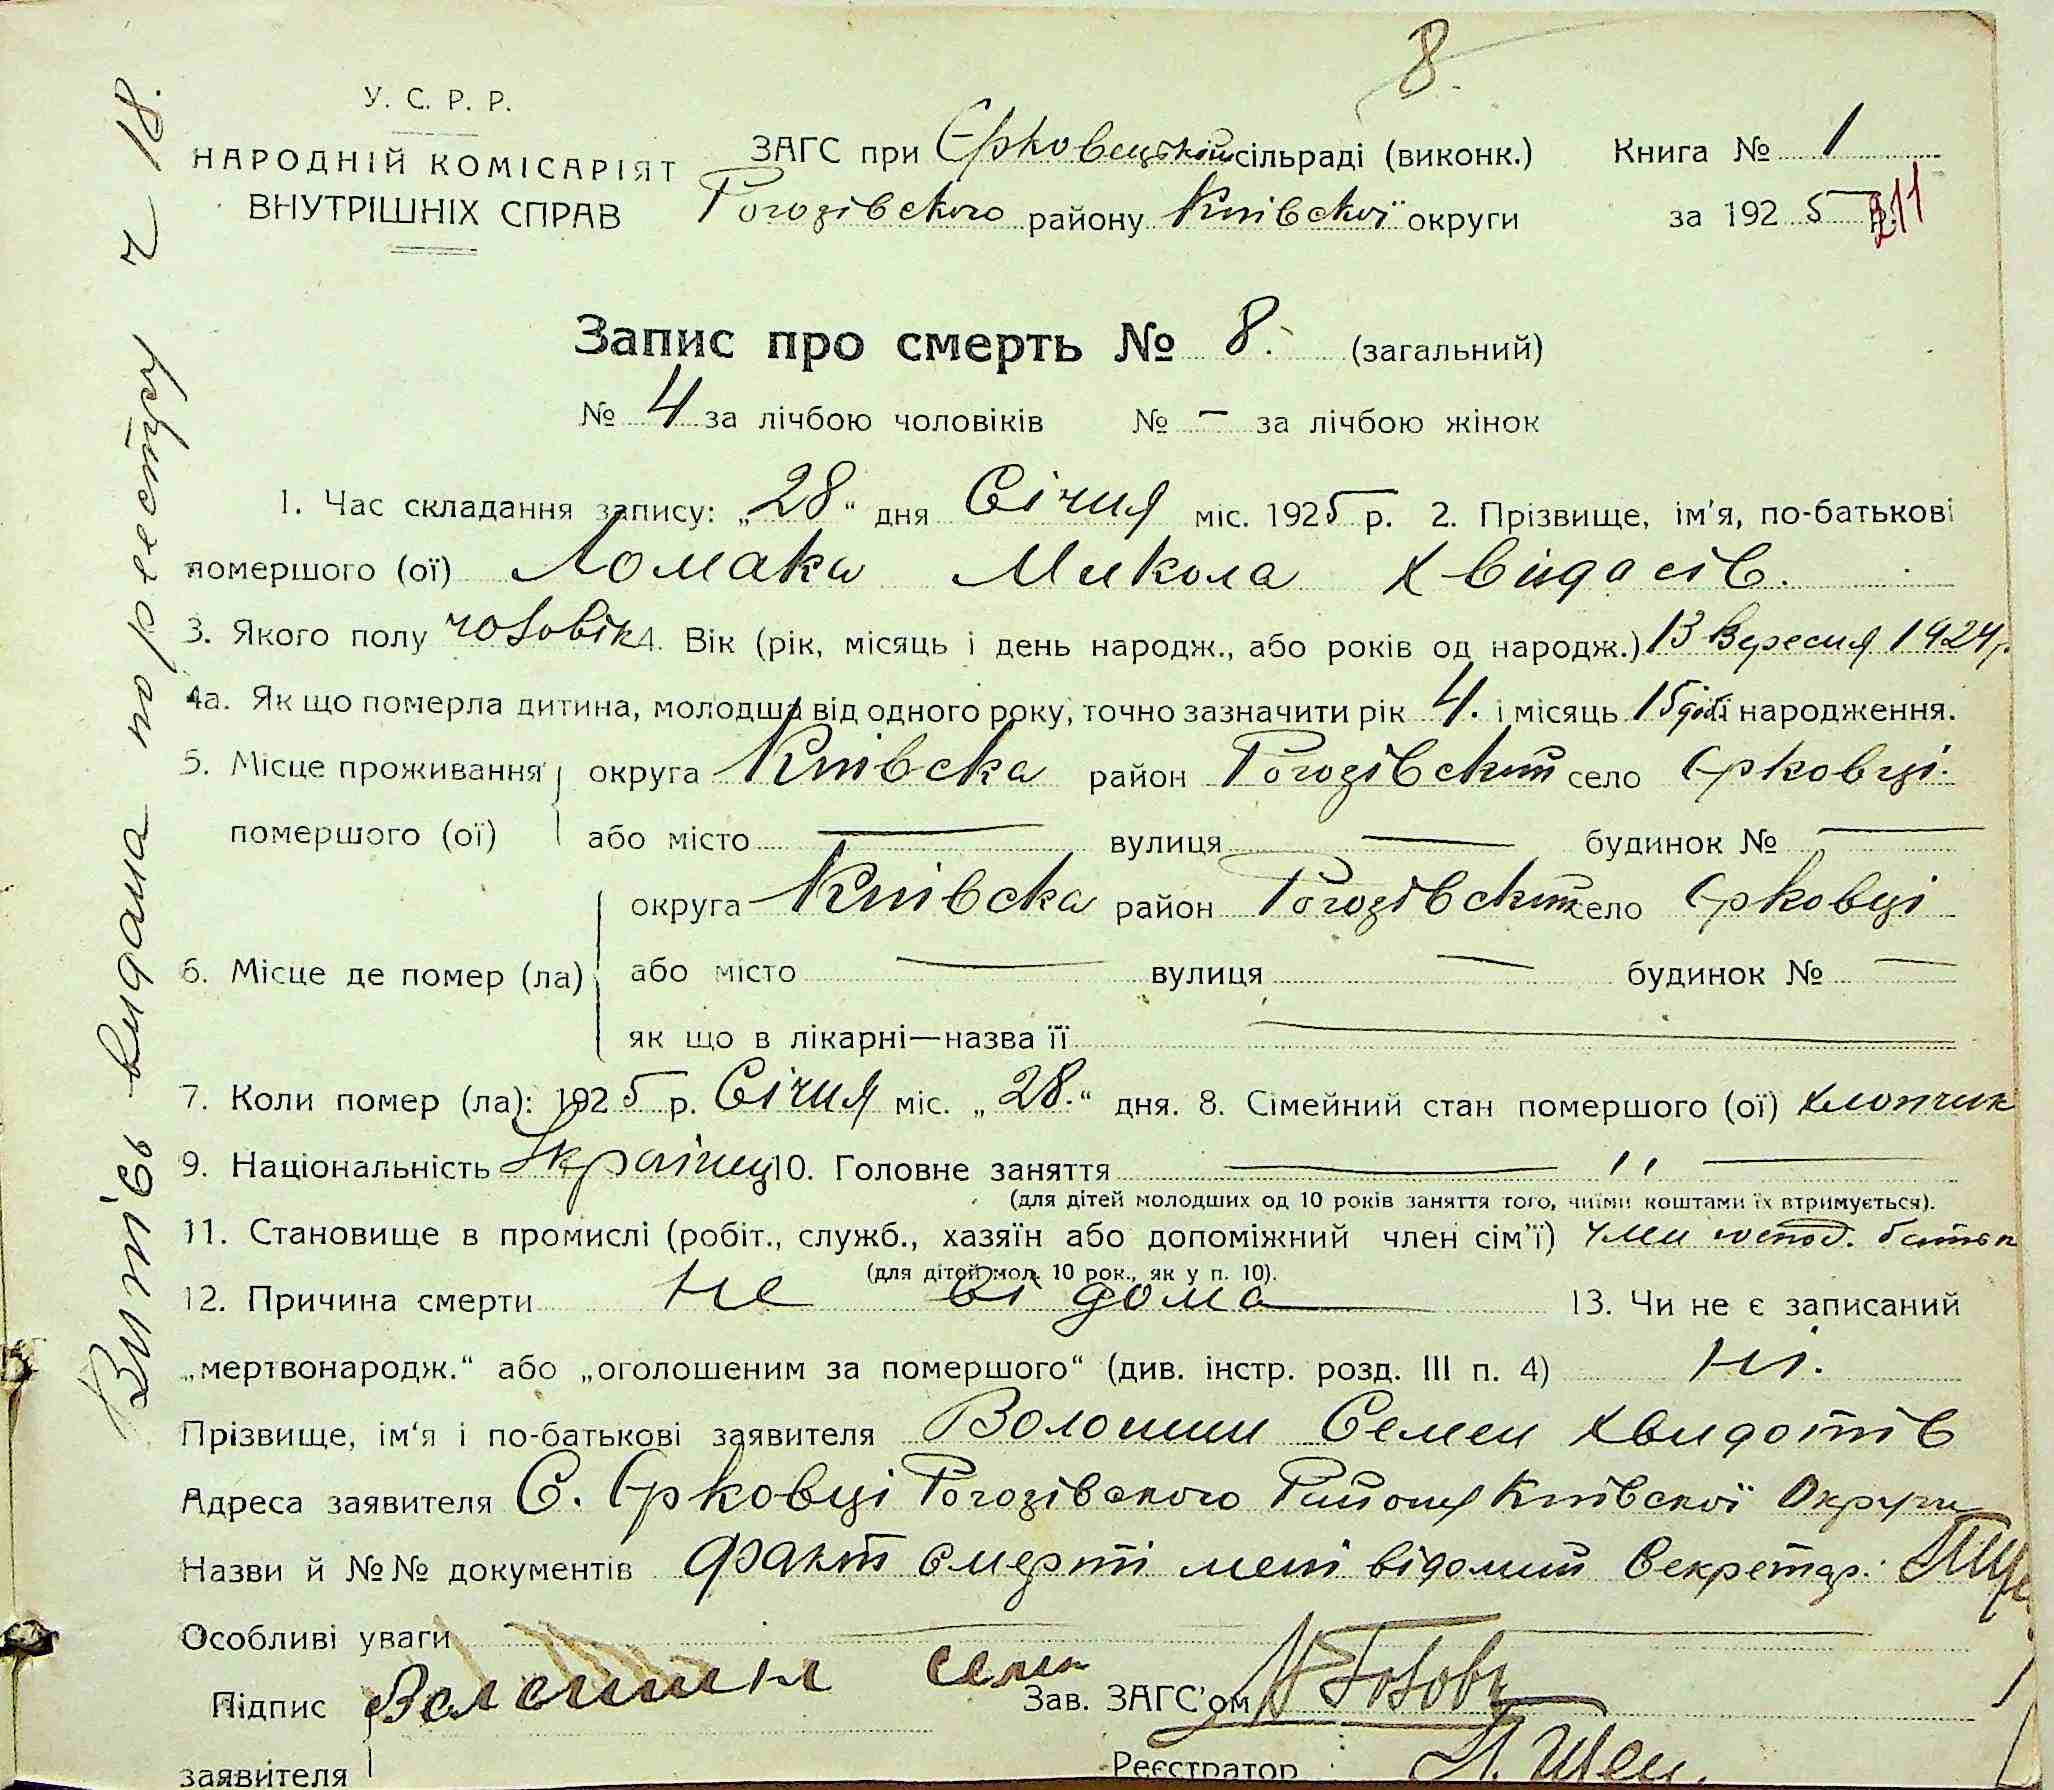 8.
У. С. Р. Р.
НАРОДНІЙ КОМІСАРІЯТ
ВНУТРІШНІХ СПРАВ
ЗАГС при Єрковецькій сільраді (виконк.)
Рогозівского району Київскої округи
Книга № 1
за 1925 р.
211
Запис про смерть № 8. (загальний)
№ 4 за лічбою чоловіків № — за лічбою жінок
1. Час складання запису: „28" дня Січня міс. 1925 р. 2. Прізвище, ім'я, по-батькові
помершого (ої) Ломака Микола
3. Якого полу чоловік 4. Вік (рік, місяць і день народж., або років од народж.) 13 Вересня 1924 р.
4а. Як що померла дитина, молодша від одного року, точно зазначити рік 4. і місяць 15 народження.
5. Місце проживання округа Київска район Рогозівский село Єрковці.
помершого (ої) або місто — вулиця — будинок № —
округа Київска район Рогозівский село Єрковці
6. Місце де помер (ла) або місто — вулиця — будинок № —
як що в лікарні—назва її —
7. Коли помер (ла): 1925 р. Січня міс. „28." дня. 8. Сімейний стан помершого (ої) хлопчик
9. Національність Українец 10. Головне заняття — '' —
(для дітей молодших од 10 років заняття того, чиїми коштами їх втримується).
11. Становище в промислі (робіт., служб., хазяїн або допоміжний член сім'ї) член господ. батька
(для дітей мол. 10 рок., як у п. 10).
12. Причина смерти не відома 13. Чи не є записаний
„мертвонародж." або „оголошеним за помершого" (див. інстр. розд. III п. 4) ні.
Прізвище, ім'я і по-батькові заявителя Волошин Семен Хвидотів
Адреса заявителя С. Єрковці Рогозівского Району Київскої Округи
Назви й №№ документів факт смерті мені відомий Секретар:
Особливі уваги —
Підпис Волошин Семен Зав. ЗАГС'ом
заявителя Реєстратор
Витісь видана по реестру ч 18.